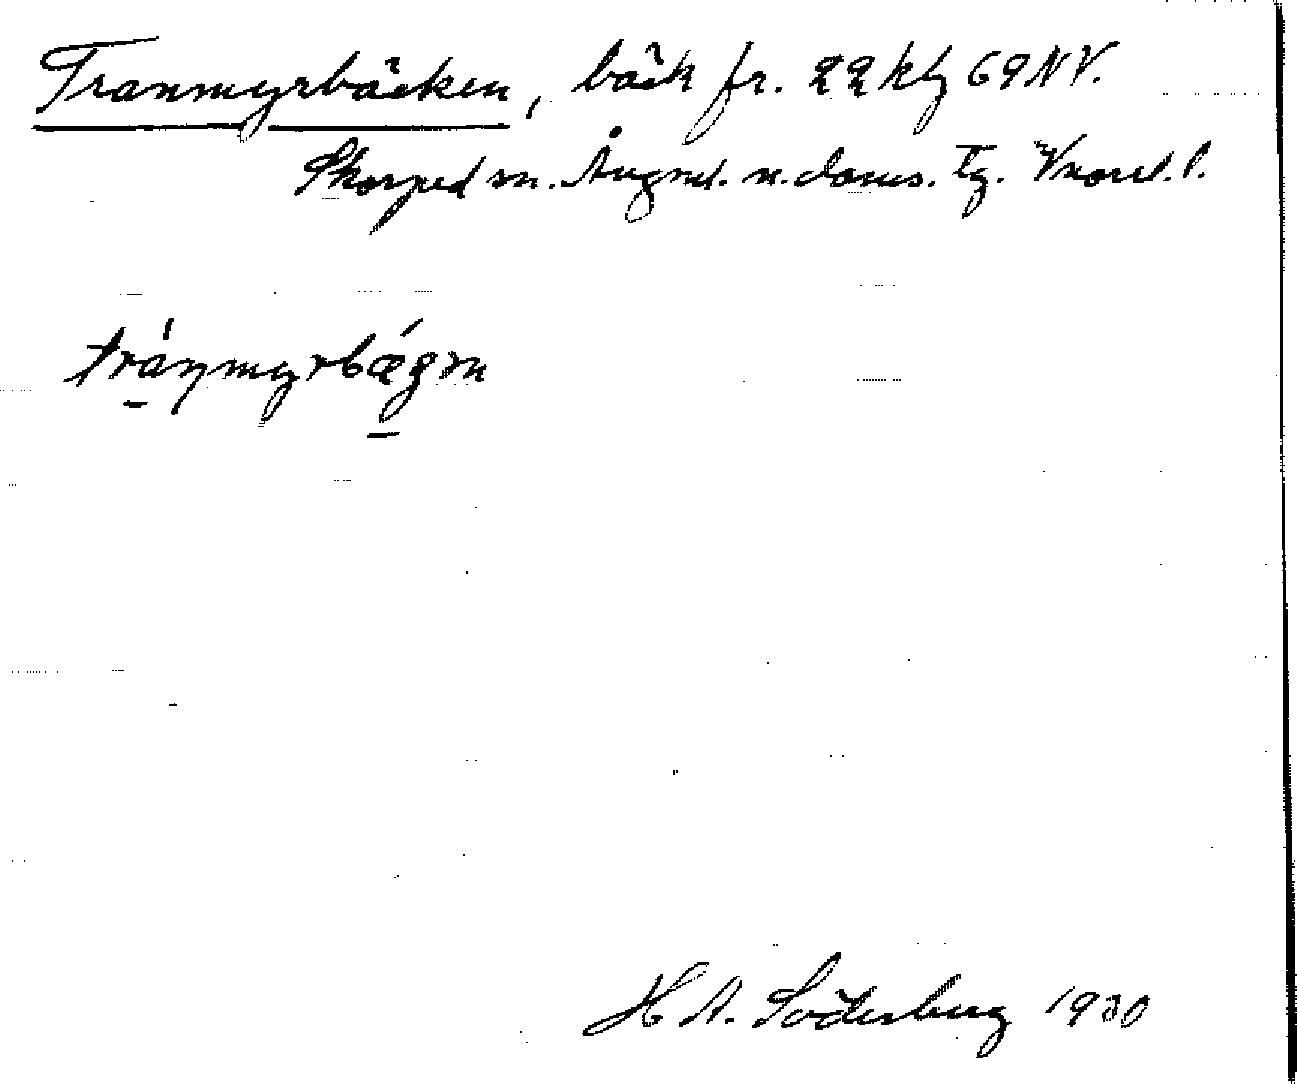 Tranmyrbäcken, bäck fr. 22 kfg 69 NV.
Skorped sn. Ångml. n. doms. tg. Vnorrl. l.
tránmyrbǽgɳ
H A. Söderberg 1930